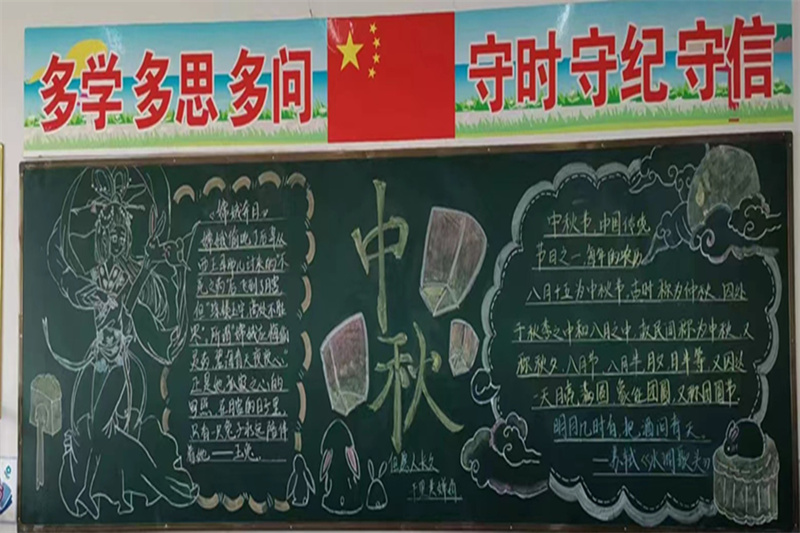 多学多思多问
守时守纪守信
《嫦娥奔月》
嫦娥偷吃了后羿从
西王母那儿讨来的不
死之药后飞到了月宫
但"琼楼玉宇,高处不胜
寒",所谓"嫦娥应悔偷
灵药 碧海青天夜夜心"
正是她孤寂之心的
写照,在月宫的日子里,
只有一只兔子永远陪伴
着她——玉兔……
中秋
但愿人长久
千里共婵娟
中秋节,中国传统
节日之一每年的农历
八月十五为中秋节,古时称为仲秋,因处
于秋季之中和八月之中,故民间称为中秋,又
称秋夕、八月节、八月半、月夕月半等,又因这
一天月亮满圆,象征团圆,又称团圆节
明月几时有,把酒问青天。
——苏轼《水调歌头》